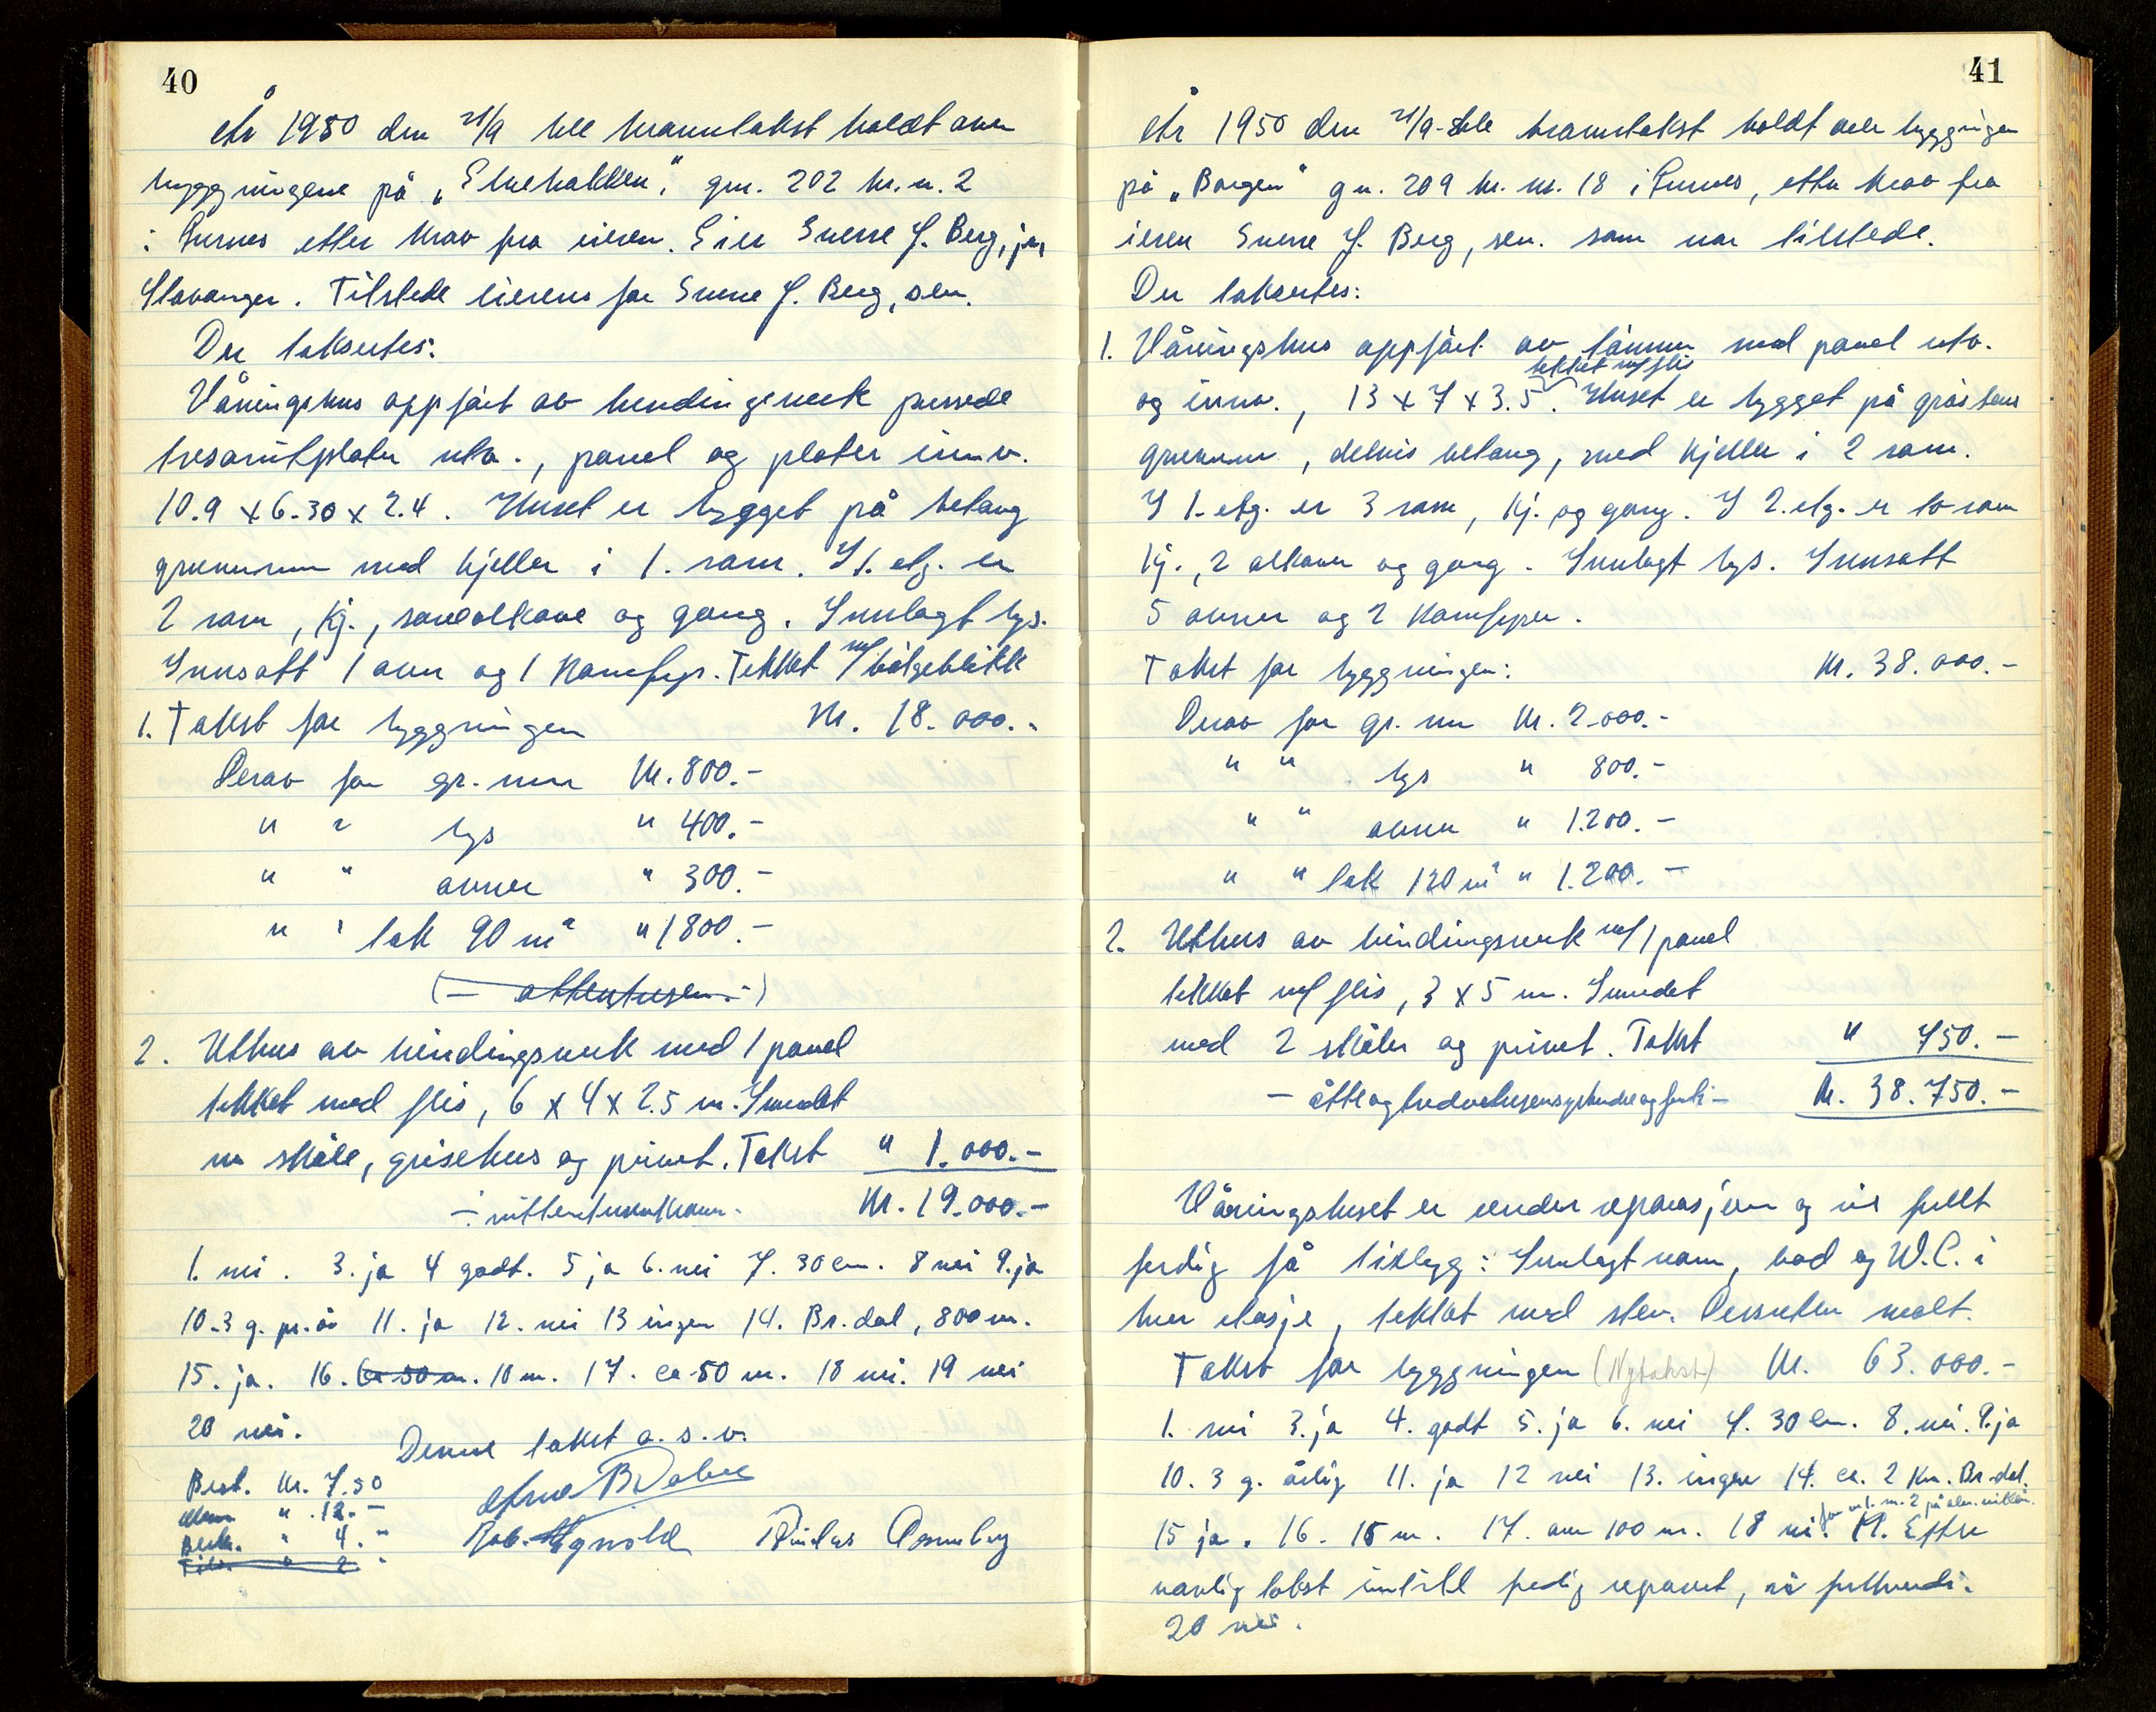 40
År 1950 den 21/9 ble branntakst holdt over
byggningene på „Ekrebakken", gnr. 202 br. n. 2
i Furnes etter krav fra eieren. Eier Sverre J. Berg, jr,
Stavanger. Tilstede eierens far Sverre J. Berg, sen.
Der taksertes:
Våningshus oppført av bindingsverk pussede
tresonitplater utv., panel og plater innv.
10.9 x 6.30 x 2.4. Huset er bygget på betong
grunnmur med kjeller i 1. rom. I 1. etg. er
2 rom, kj., sovealkove og gang. Innlagt lys.
Innsatt 1 ovn og 1 komfyr. Tekket m/bølgeblikk
1. Takst for byggningen Kr. 18.000.-
Derav for gr. mur Kr. 800.-
" " lys " 400.-
" " ovner " 300.-
" " tak 90 m² " 1800.-
(— attentusen.-)
2. Uthus av bindingsverk med 1 panel
tekket med flis, 6 x 4 x 2.5 m. Innredet
m skåle, grisehus og privet. Takst " 1.000.-
- nittentusenkroner - Kr. 19.000.-
1. nei. 3. ja 4 godt. 5 ja 6. nei 7. 30 cm. 8 nei 9. ja
10. 3 g. pr. år 11. ja 12. nei 13 ingen 14. Br.dal, 800 m.
15. ja. 16. Ca 50 m. 10 m. 17. ca 50 m. 18 nei. 19 nei
20 nei.
Denne takst a. s. v.
Best. Kr. 7.50
" 12.-
" 4.-
" 2.-
41
År 1950 den 21/9 ble branntakst holdt over byggningen
på „Borgen" gn. 209 br. nr. 18 i Furnes, etter krav fra
eieren Sverre J. Berg, sen. som var tilstede.
Der taksertes:
1. Våningshus oppført av tømmer med panel utv.
tekket m/flis
og innv., 13 x 7 x 3.5. Huset er bygget på gråstens
grunnmur, delvis betong, med kjeller i 2 rom.
I 1. etg. er 3 rom, kj. og gang. I 2. etg. er to rom
kj., 2 alkover og gang. Innlagt lys. Innsatt
5 ovner og 2 komfyrer.
Takst for byggningen: Kr. 38.000.-
Derav for gr. mur Kr. 2.000.-
" " lys " 800.-
" " ovner " 1.200.-
" " tak 120 m² " 1.200.-
2. Uthus av bindingsverk m/1 panel
tekket m/ flis, 3 x 5 m. Innredet
med 2 skåler og privet. Takst " 750.-
- åtteogtredvetusensyvhundreogfemti - Kr. 38.750.-
Våningshuset er under reparasjon og vil fullt
ferdig få tillegg: Innlagt vann, bad og W.C. i
hver etasje, tekket med sten. Dessuten malt.
Takst for byggningen (Nytakst) Kr. 63.000.-
1. nei 3. ja 4. godt 5. ja 6. nei 7. 30 cm. 8. nei. 9. ja
10. 3 g. årlig 11. ja 12 nei 13. ingen 14. ca. 2 km. Br.dal.
15 ja. 16. 15 m. 17. over 100 m. 18 nei. 19. Efter
vanlig takst inntill ferdig reparert, så fullverdi.
20 nei.